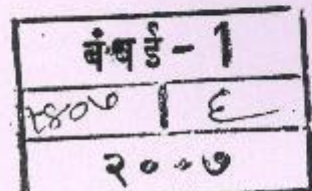 बंबई - 1
२४०७ | ६
२००७